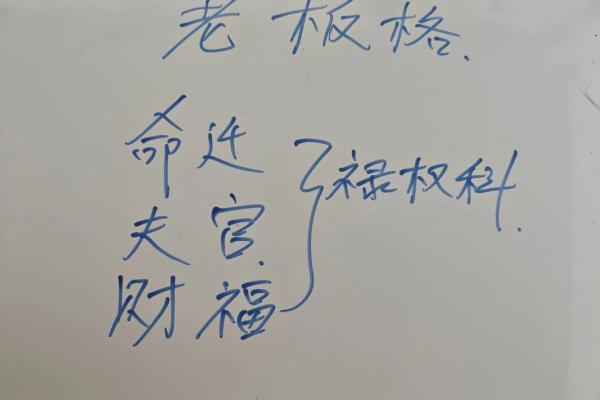 老板格.
命迁
夫官.
财福
禄权科.